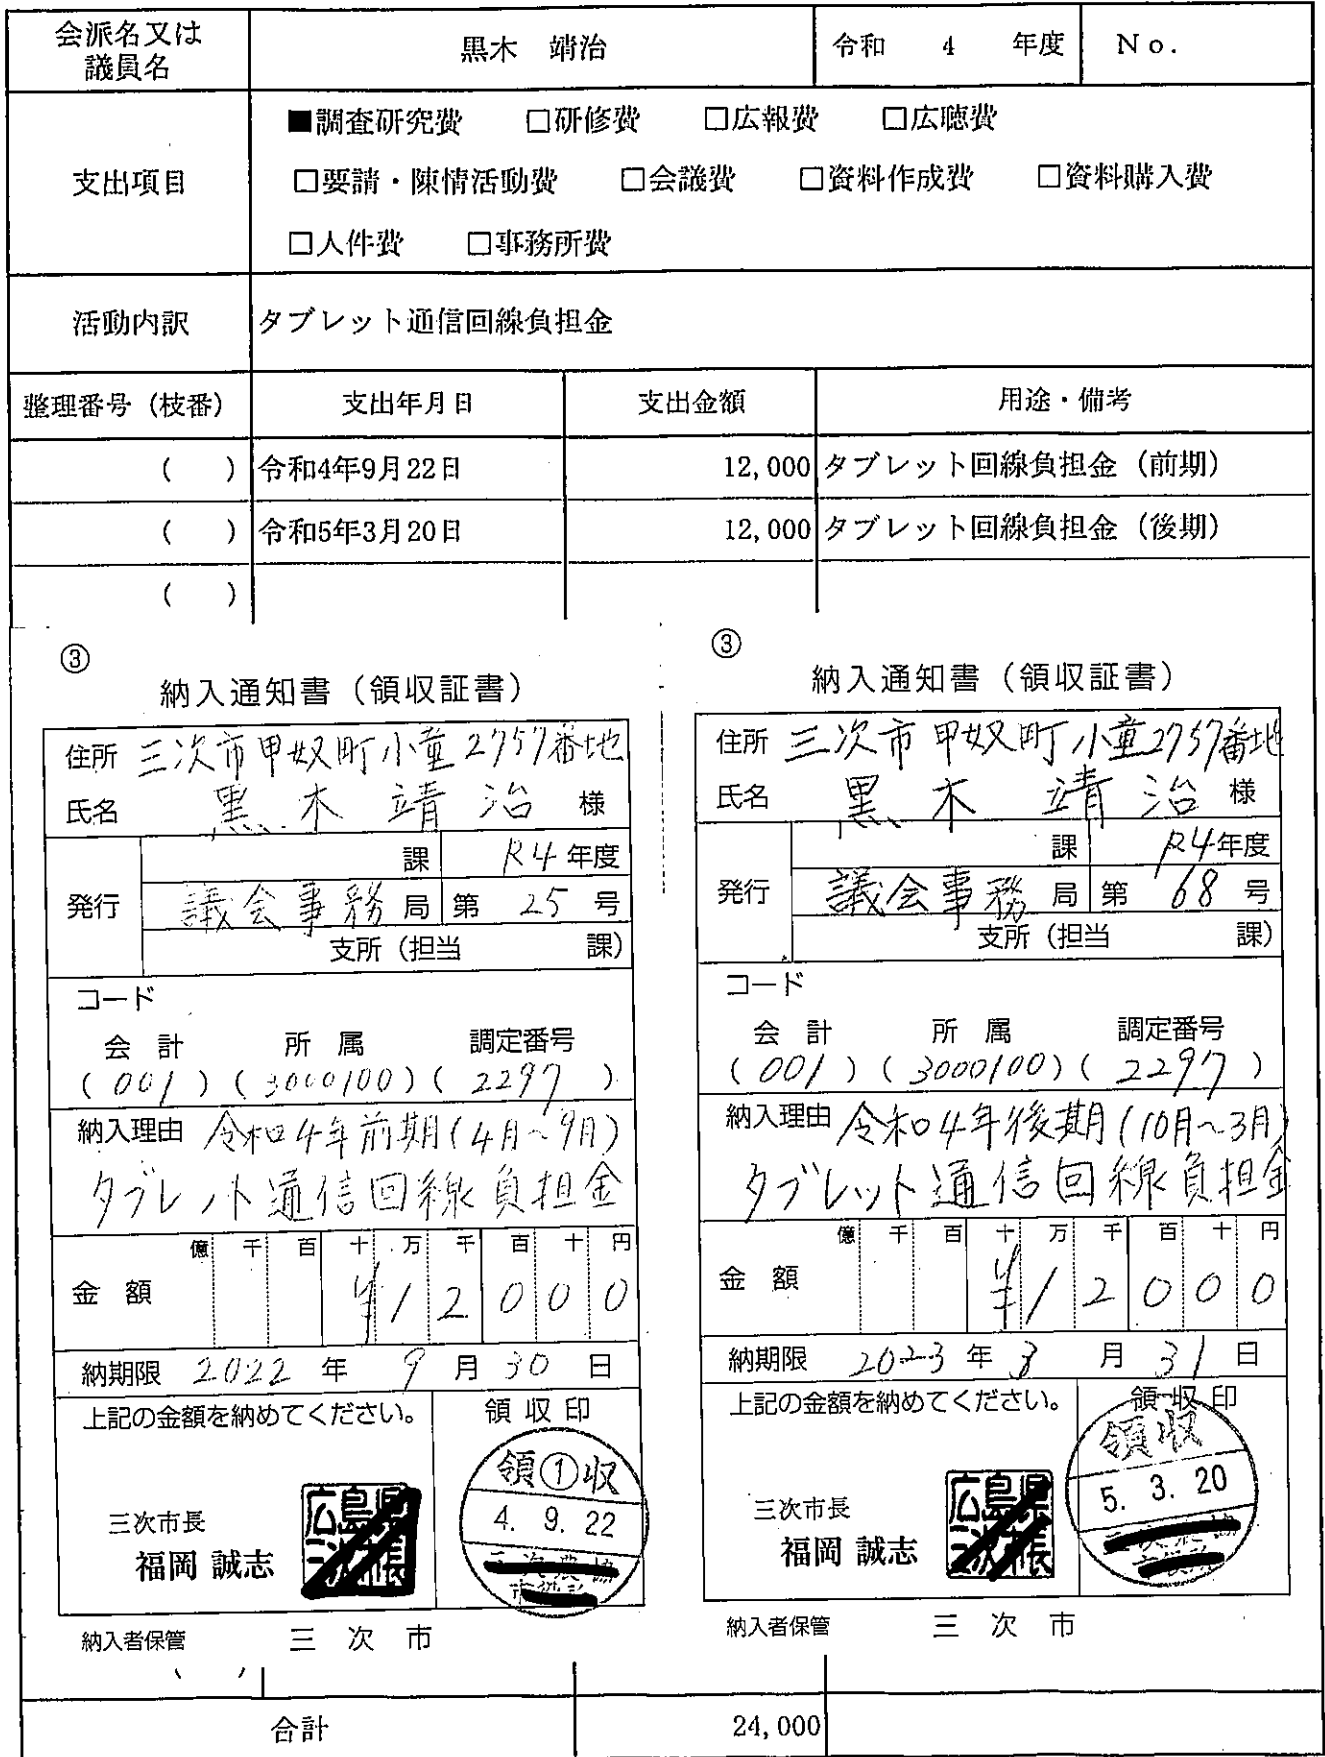 会派名又は
議員名
黒木 靖治
令和 4 年度
No.
支出項目
■調査研究費 □研修費 □広報費 □広聴費
□要請・陳情活動費 □会議費 □資料作成費 □資料購入費
□人件費 □事務所費
活動内訳
タブレット通信回線負担金
整理番号（枝番） 支出年月日 支出金額 用途・備考
（ ） 令和4年9月22日 12,000 タブレット回線負担金（前期）
（ ） 令和5年3月20日 12,000 タブレット回線負担金（後期）
（ ）
③
納入通知書（領収証書）
住所 三次市甲奴町小童2757番地
氏名 黒木靖治 様
発行
課 R4年度
議会事務局 第 25 号
支所（担当 課）
コード
会計 所属 調定番号
(001) (3000100) (2297)
納入理由 令和4年前期(4月~9月)
タブレット通信回線負担金
億 千 百 十 万 千 百 十 円
金額 ¥12000
納期限 2022年 9月30日
上記の金額を納めてください。
領収印
領①収
4. 9. 22
三次市長
福岡 誠志
納入者保管 三次市
③
納入通知書（領収証書）
住所 三次市甲奴町小童2757番地
氏名 黒木靖治 様
発行
課 R4年度
議会事務局 第 68 号
支所（担当 課）
コード
会計 所属 調定番号
(001) (3000100) (2297)
納入理由 令和4年後期(10月~3月)
タブレット通信回線負担金
億 千 百 十 万 千 百 十 円
金額 ¥12000
納期限 2023年 3月 31日
上記の金額を納めてください。
領収印
領収
5. 3. 20
三次市長
福岡 誠志
納入者保管 三次市
合計 24,000